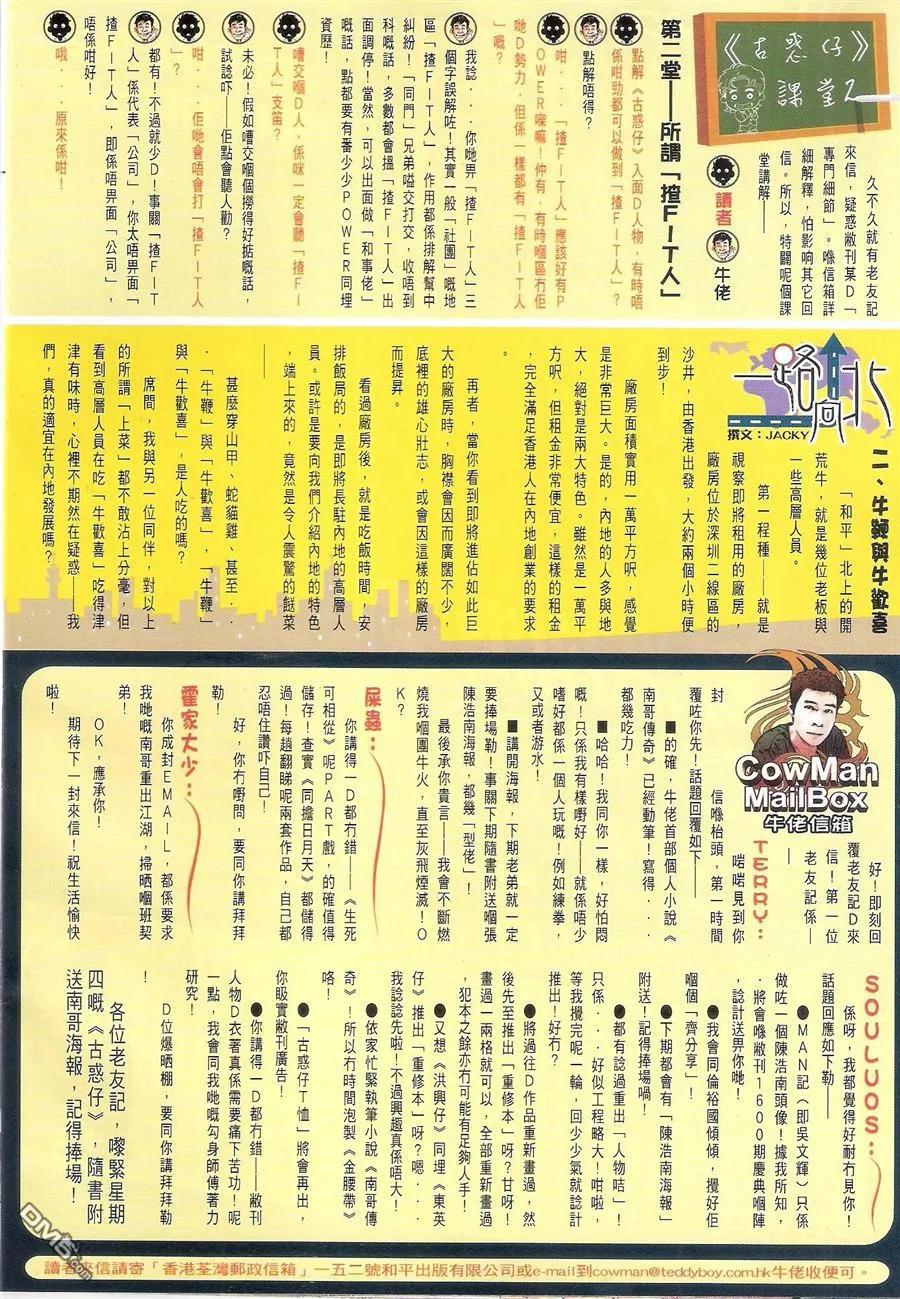 《古惑仔》
課堂2
久不久就有老友記
來信，疑惑敝刊某D「
專門細節」。喺信箱詳
細解釋，怕影響其它回
信。所以，特闢呢個課
堂講解——
讀者
牛佬
第二堂——所謂「揸FIT人」
點解《古惑仔》入面D人物，有時唔
係咁勁都可以做到「揸FIT人」？
點解唔得？
咁...「揸FIT人」應該好有P
OWER㗎嘛！仲有，有時嗰區冇佢
哋D勢力，但係一樣都有「揸FIT人
」嘅？
我諗...你哋畀「揸FIT人」三
個字誤解咗！其實一般「社團」嘅地
區「揸FIT人」，作用都係排解幫中
糾紛！「同門」兄弟嗌交打交，收唔到
科嘅話，多數都會搵「揸FIT人」出
面調停！當然，可以出面做「和事佬」
嘅話，點都要有番少少POWER同埋
資歷！
嘈交嗰D人，係咪一定會聽「揸FI
T人」支笛？
未必！假如嘈交嗰個撈得好掂嘅話，
試諗吓——佢點會聽人勸？
咁...佢哋會唔會打「揸FIT人
」？
都有！不過就少D！事關「揸FIT
人」係代表「公司」，你太唔畀面「
揸FIT人」，即係唔畀面「公司」，
唔係咁好！
哦...原來係咁！
一路向北
撰文：JACKY
二、牛鞭與牛歡喜
「和平」北上的開
荒牛，就是幾位老板與
一些高層人員。
第一程種——就是
視察即將租用的廠房，
廠房位於深圳二線區的
沙井，由香港出發，大約兩個小時便
到步！
廠房面積實用一萬平方呎，感覺
是非常巨大。是的，內地的人多與地
大，絕對是兩大特色。雖然是一萬平
方呎，但租金非常便宜，這樣的租金
，完全滿足香港人在內地創業的要求
。
再者，當你看到即將進佔如此巨
大的廠房時，胸襟會因而廣闊不少，
底裡的雄心壯志，或會因這樣的廠房
而提昇。
看過廠房後，就是吃飯時間，安
排飯局的，是即將長駐內地的高層人
員。或許是要向我們介紹內地的特色
，端上來的，竟然是令人震驚的餸菜
——
甚麼穿山甲、蛇貓雞、甚至..
.「牛鞭」與「牛歡喜」，「牛鞭」
與「牛歡喜」，是人吃的嗎？
席間，我與另一位同伴，對以上
的所謂「上菜」都不敢沾上分毫，但
看到高層人員在吃「牛歡喜」吃得津
津有味時，心裡不期然在疑惑——我
們，真的適宜在內地發展嗎？
CowMan
MailBox
牛佬信箱
好！即刻回
覆老友記D來
信！第一位
老友記係—
—
TERRY：
啱啱見到你
信喺枱頭，第一時間
覆咗你先！話題回覆如下——
■的確，牛佬首部個人小說《
南哥傳奇》已經動筆！寫得...
都幾吃力！
■哈哈！我同你一樣，好怕悶
嘅！只係我有樣嘢好——就係唔少
嗜好都係一個人玩嘅！例如練拳，
又或者游水！
■講開海報，下期老弟就一定
要捧場勒！事關下期隨書附送嗰張
陳浩南海報，都幾「型佬」！
最後承你貴言——我會不斷燃
燒我嗰團牛火，直至灰飛煙滅！O
K？
屎蟲：
你講得一D都冇錯——《生死
可相從》呢PART戲，的確值得
儲存！查實《同擔日月天》都儲得
過！每趟翻睇呢兩套作品，自己都
忍唔住讚吓自己！
好，你冇嘢問，要同你講拜拜
勒！
霍家大少：
你成封EMAIL，都係要求
我哋嘅南哥重出江湖，掃晒嗰班契
弟！
OK，應承你！
期待下一封來信！祝生活愉快
啦！
SOULUOS：
係呀，我都覺得好耐冇見你！
話題回應如下勒——
●MAN記（即吳文輝）只係
做咗一個陳浩南頭像！據我所知，
將會喺敝刊1600期慶典嗰陣
，諗計送畀你哋！
●我會同倫裕國傾傾，攪好佢
嗰個「齊分享」！
●下期都會有「陳浩南海報」
附送！記得捧場喎！
●都有諗過重出「人物咭」！
只係...好似工程略大！咁啦，
等我攪完呢一輪，回少少氣就諗計
推出！好冇？
●將過往D作品重新畫過，然
後先至推出「重修本」呀？甘呀！
畫過一兩格就可以，全部重新畫過
，犯本之餘亦冇可能有足夠人手！
●又想《洪興仔》同埋《東英
仔》推出「重修本」呀？嗯...
我諗諗先啦！不過興趣真係唔大！
●依家忙緊執筆小說《南哥傳
奇》！所以冇時間泡製《金腰帶》
咯！
●「古惑仔T恤」將會再出，
你眼實敝刊廣告！
●你講得一D都冇錯——敝刊
人物D衣著真係需要痛下苦功！呢
一點，我會同我哋嘅勾身師傅著力
研究！
D位爆晒棚，要同你講拜拜勒
！
各位老友記，嚟緊星期
四嘅《古惑仔》，隨書附
送南哥海報，記得捧場！
讀者來信請寄「香港荃灣郵政信箱」一五二號和平出版有限公司或e-mail到cowman@teddyboy.com.hk牛佬收便可。